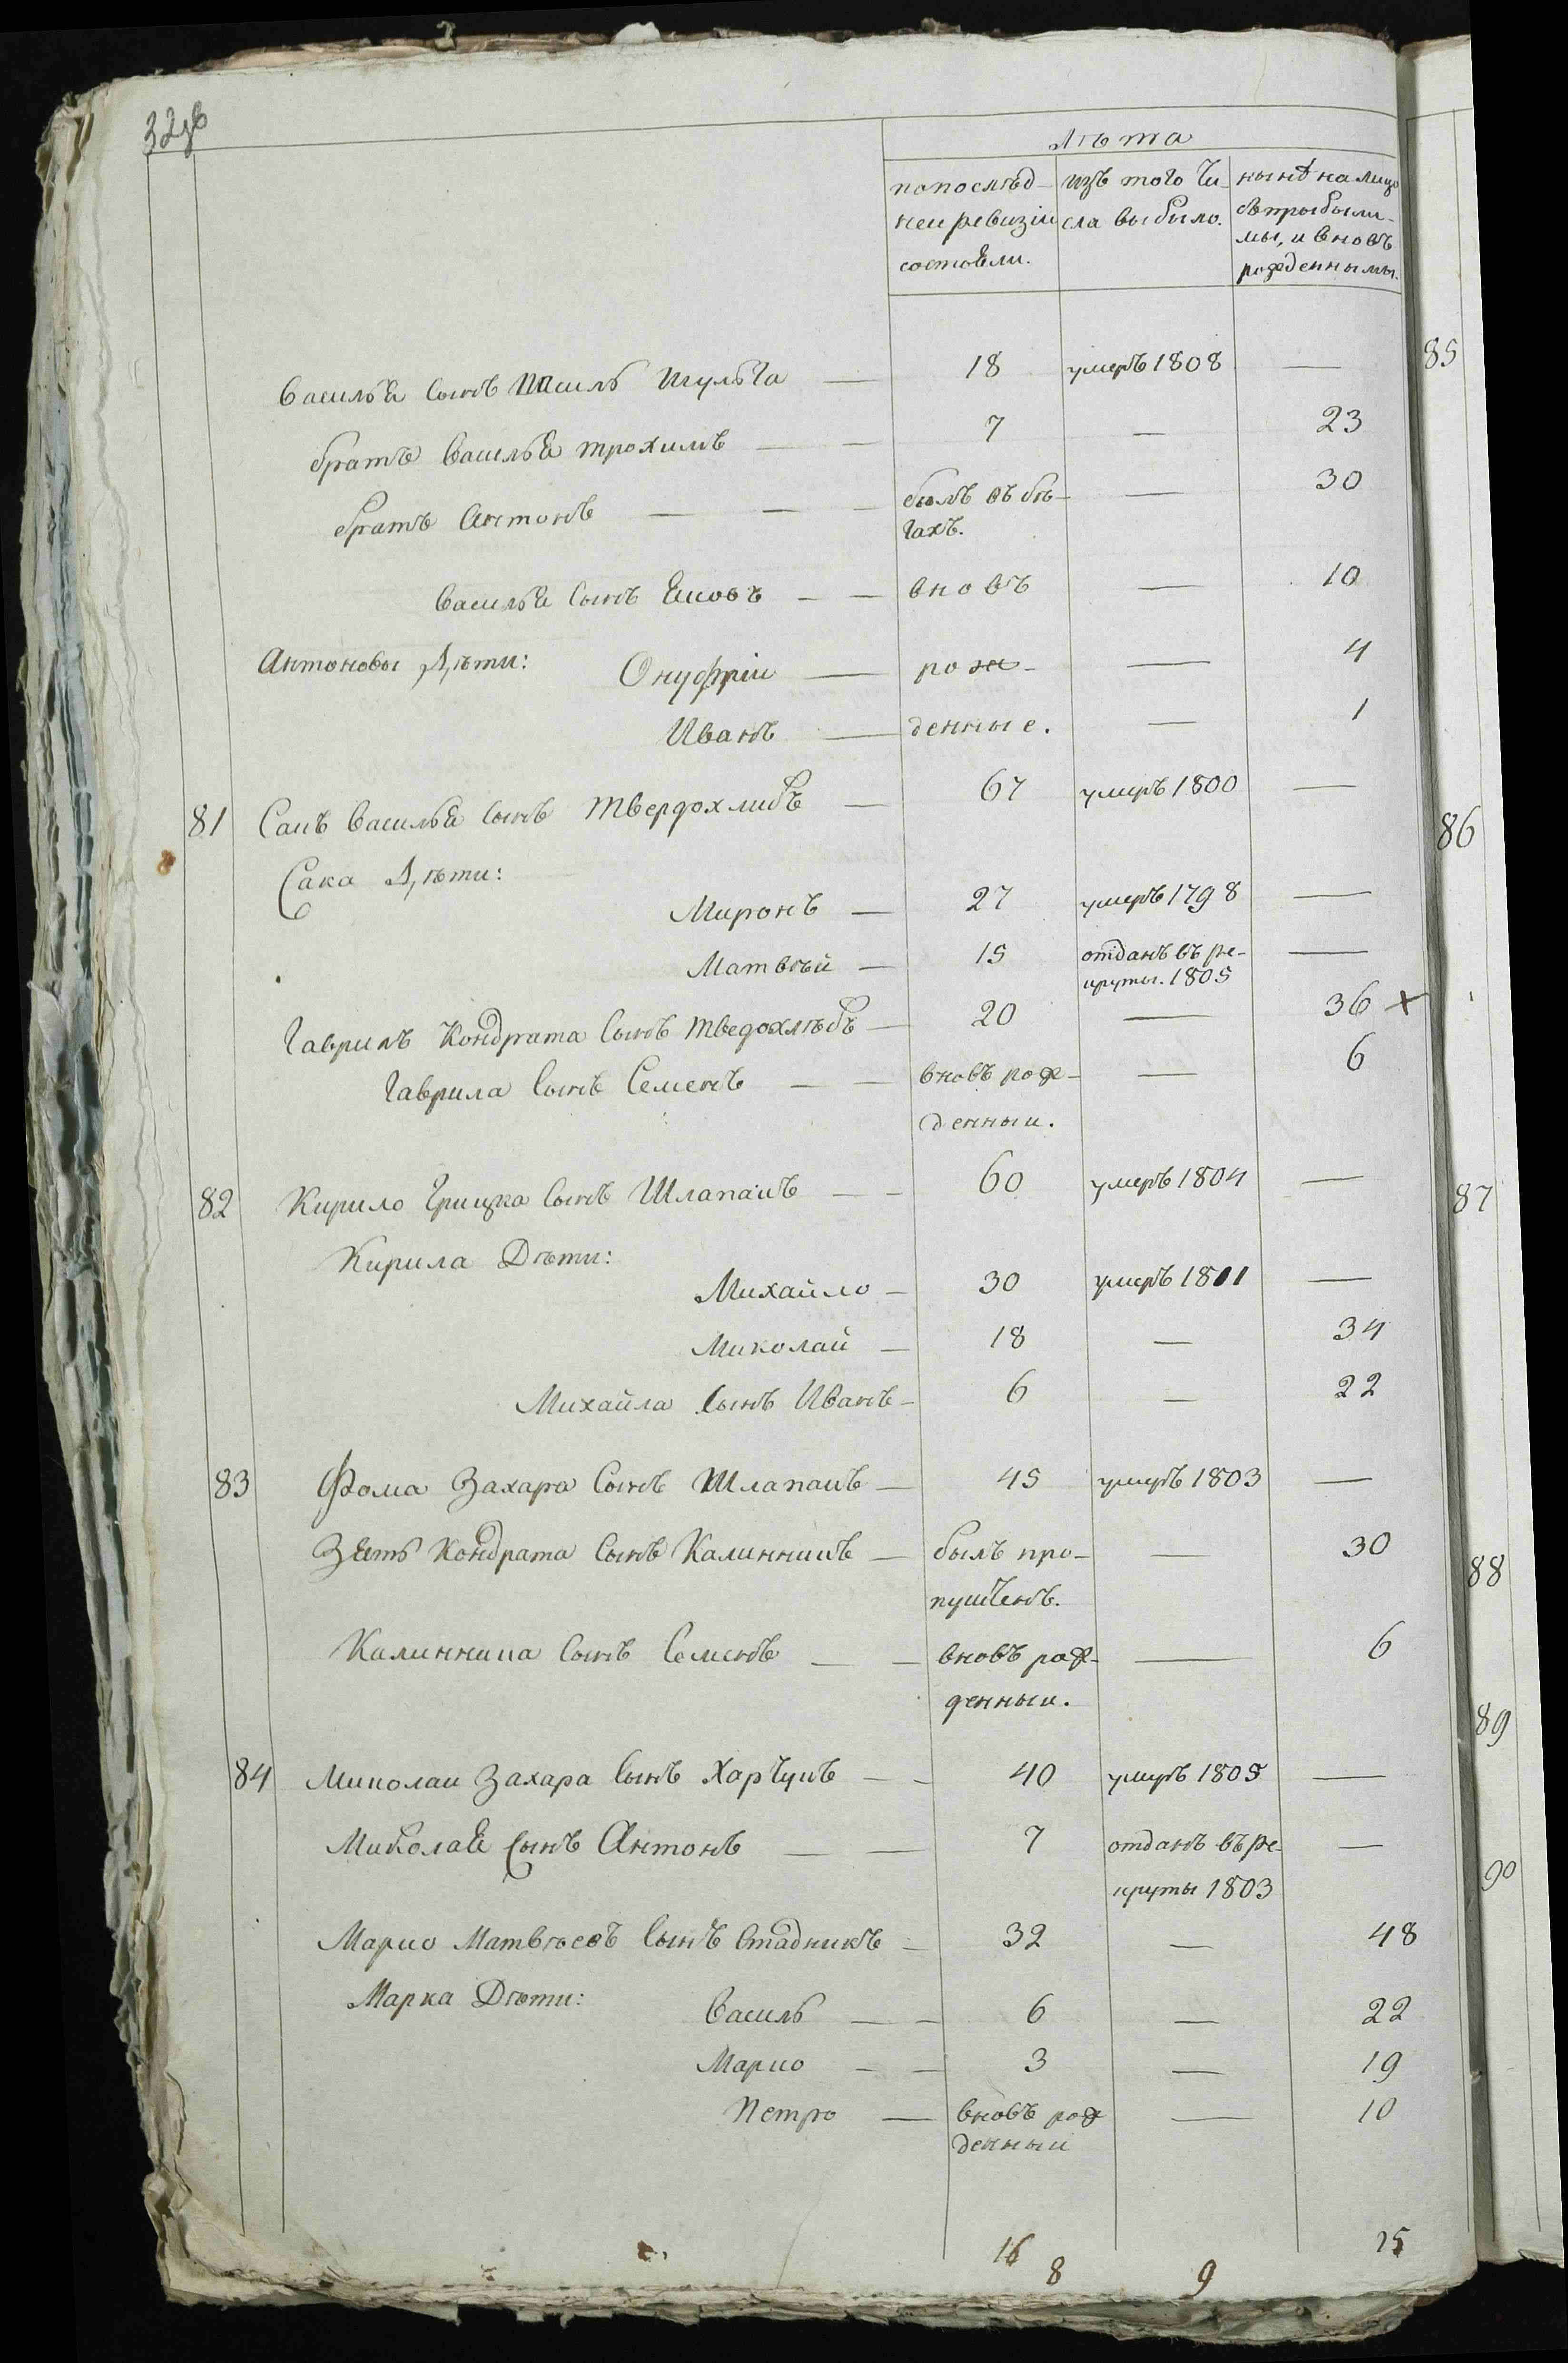 32зв
Лѣта
по послѣд-
ней ревизіи
состоѣли.
изъ того чи-
сла выбыло.
нынѣ на лицо
съ прыбыли-
мы, и вновъ
рожденнымы.
Василья сынъ Шульга — 18 умеръ 1808 —
братъ Василья трохимъ — — 7 — 23
братъ Антонъ — — — былъ въ бѣ- — 30
гахъ.
Василья сынъ — — вновъ — 10
Антоновы Дѣти: Онуфріи — рож- — 4
Иванъ — денные. — 1
81 Сакъ Василья сынъ Твердохлибъ — 67 умеръ 1800 —
Сака Дѣти:
Миронъ — 27 умеръ 1798 —
Матвѣй — 15 отданъ въ ре- —
круты. 1805
Гаврилъ Кондрата сынъ Тведохлѣбъ — 20 — 36 х
Гаврила сынъ Семенъ — — вновъ рож- — 6
денныи.
82 Кирило Грицка сынъ Шлапакъ — — 60 умеръ 1804 —
Кирила Дѣти:
Михайло — 30 умеръ 1811 —
Миколай — 18 — 34
Михайла сынъ Иванъ — 6 — 22
83 Фома Захара сынъ Шлапакъ — 45 умеръ 1803 —
Зять Кондрата сынъ Калинникъ — былъ про- — 30
пущенъ.
Калинника сынъ Семенъ — — вновъ рож- — 6
денныи.
84 Миколаи Захара сынъ Харчукъ — — 40 умеръ 1805 —
Миколая сынъ Антонъ — — 7 отданъ въ ре- —
круты 1803
Марко Матвѣевъ сынъ Стадникъ — 32 — 48
Марка Дѣти: Василь — — 6 — 22
Марко — — 3 — 19
Петро — вновъ рож — 10
денныи
16 8 9 15
85
86
87
88
89
90